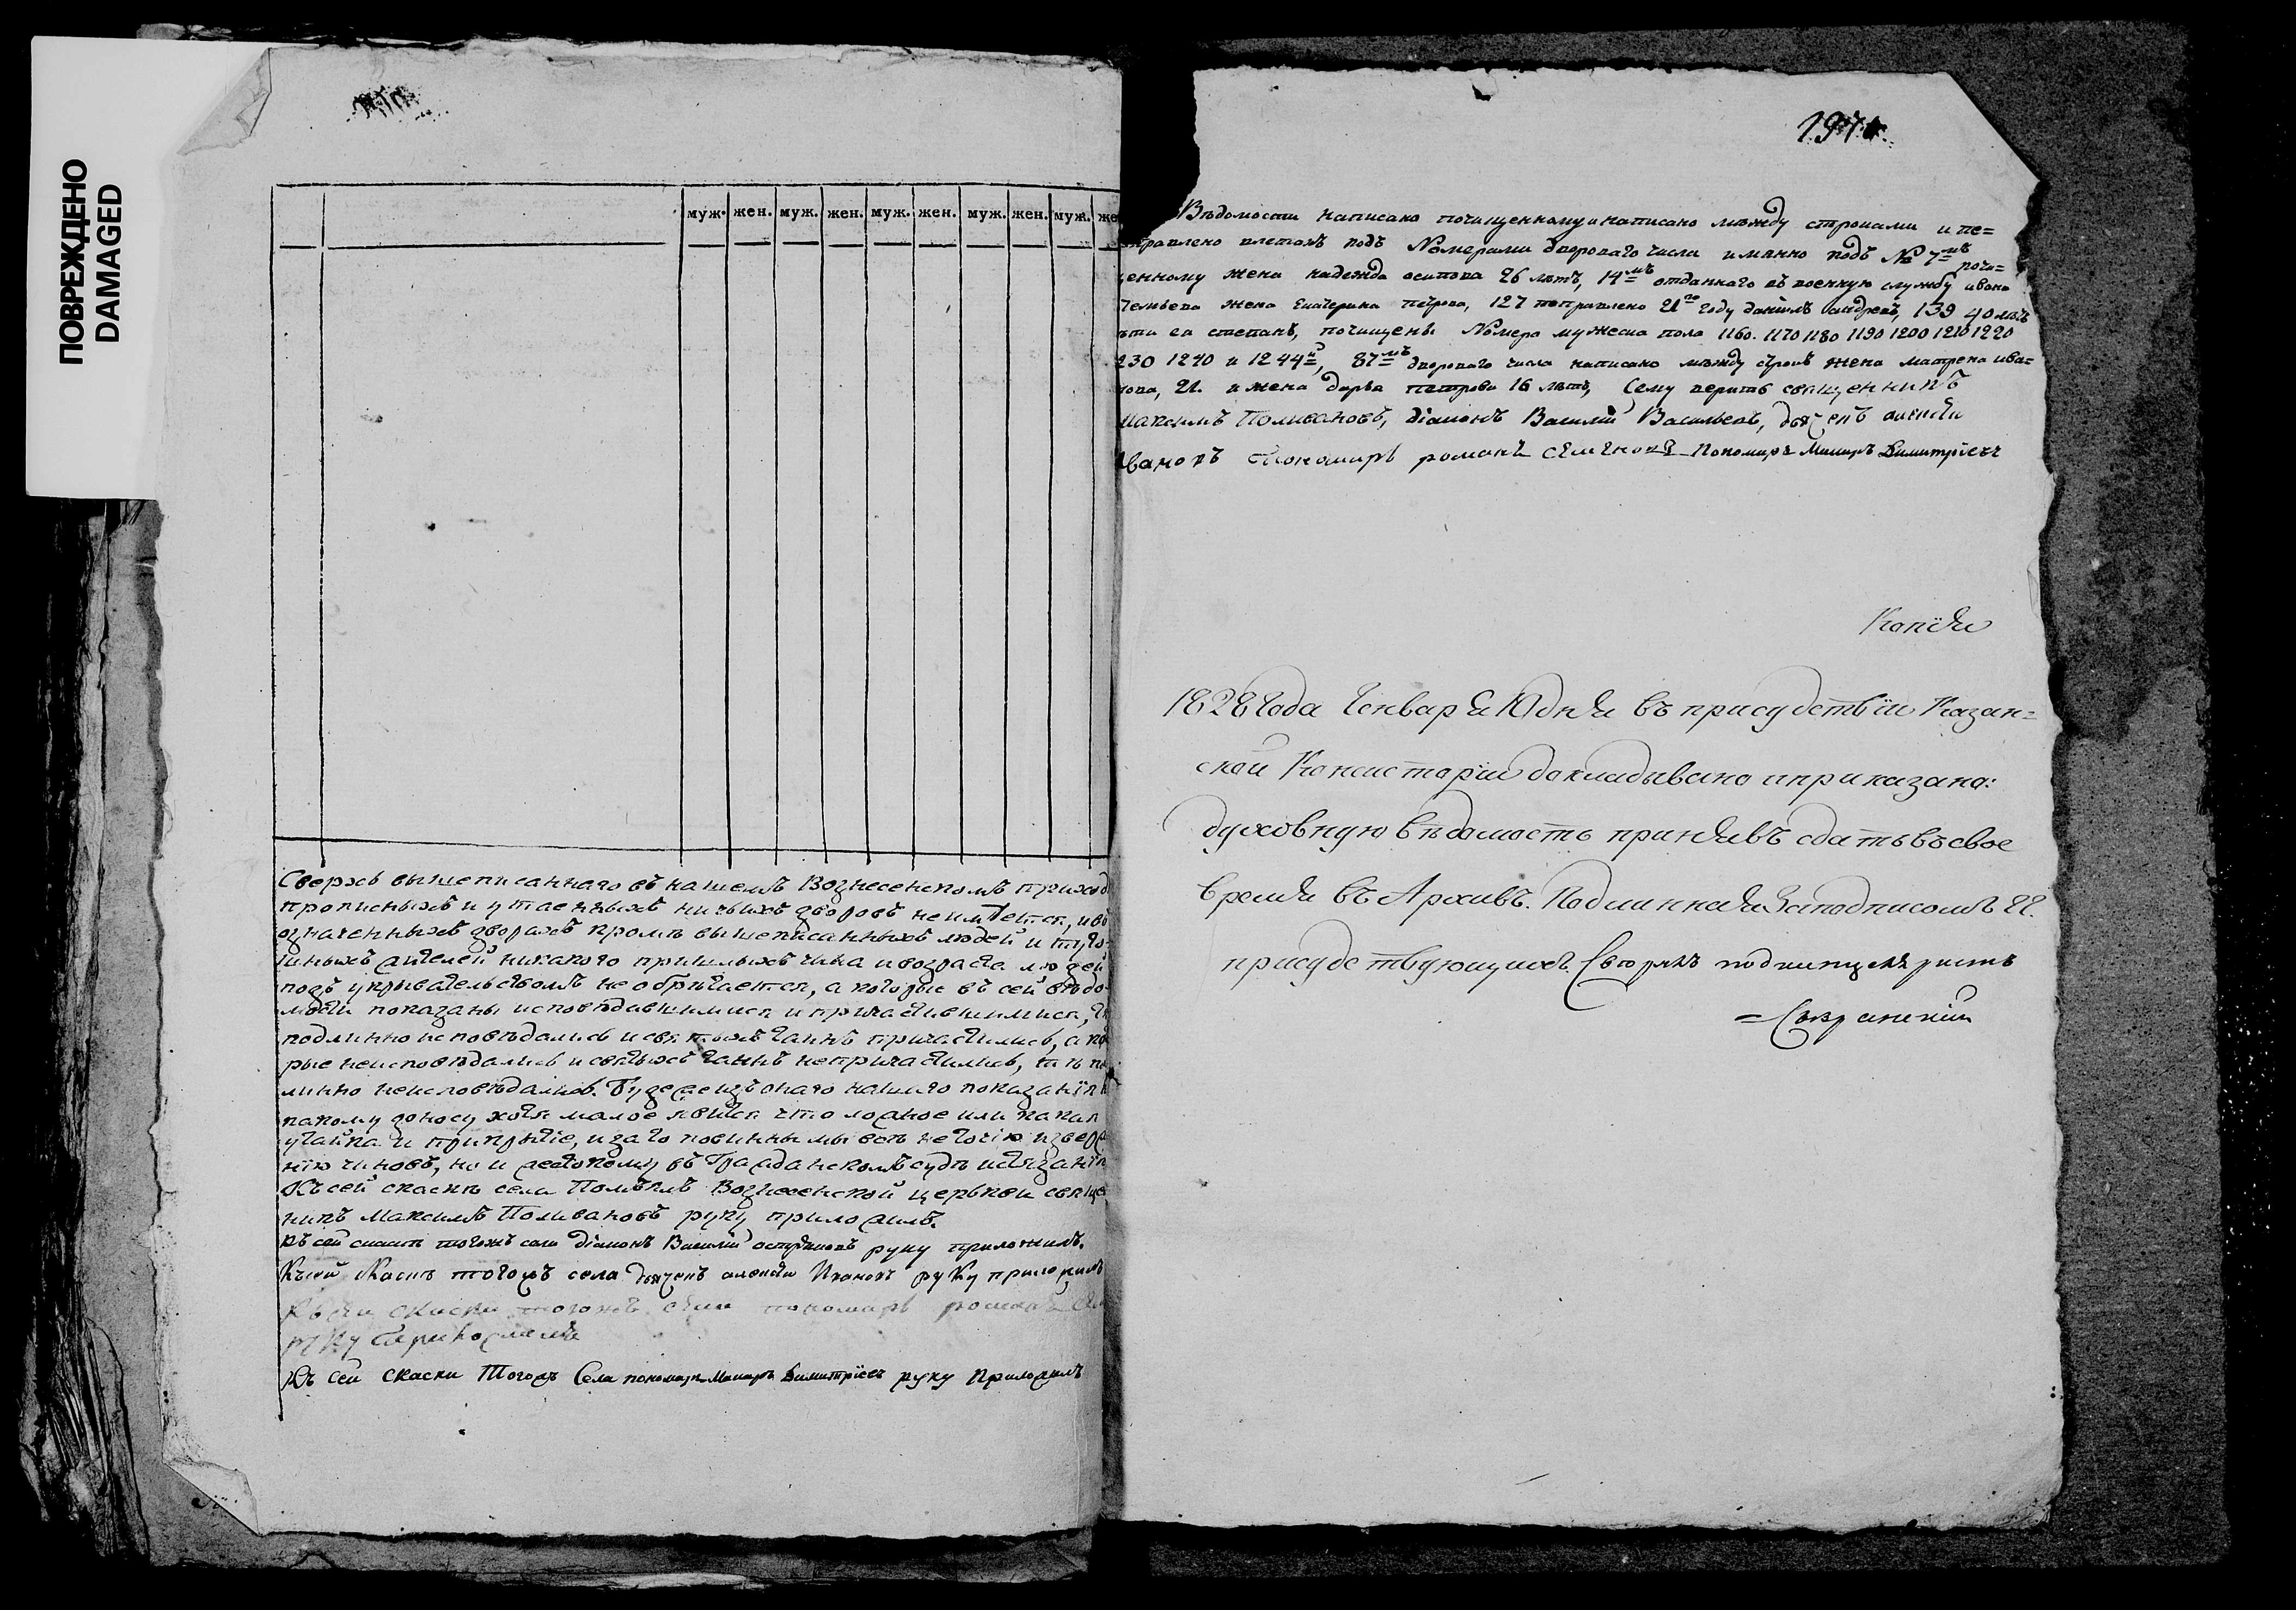 ПОВРЕЖДЕНО
DAMAGED
муж. жен. муж. жен. муж. жен. муж. жен. муж. же
Сверхъ вышеписаннаго въ нашемъ Вознесенскомъ приход
прописныхъ и утаенныхъ ничьихъ дворовъ неимѣется, и въ
означенныхъ дворахъ кромѣ вышеписанныхъ людей и
жителей никакого пришлыхъ чина и возраста людей
подъ укрывательствомъ не обрѣтается, а которые въ сей вѣдо-
мости показаны исповѣдавшимися и причастившимися,
подлинно исповѣдались и святыхъ таинъ причастились, а ко
рые неисповѣдались и святыхъ таинъ непричастились, тѣ по
линно неисповѣдались. Буде же изъ онаго нашего показанія
какому доносу хотя малое явится что ложное или какая
утайка и прикрытіе, и за то повинны мы есть не точію изверже
нію чиновъ, но и жестокому въ Гражданскомъ судѣ истязанія
Къ сей скаскѣ села Вознесенской церькви свяще
никъ Максимъ Поливановъ руку приложилъ.
Къ сей скаскѣ тогожъ села діаконъ Василій руку приложилъ.
Къ сей скаскѣ тогожъ села дьячекъ алексѣй Ивановъ руку приложилъ
Къ сей скаски тогожъ села пономарь романъ
руку приложилъ
Къ сей скаски Тогожъ Села пономарь Макаръ Димитріевъ руку Приложилъ
197
Вѣдомости написано почищенному и написано между строками и пе=
правлено летахъ подъ Номерами двороваго числа имянно подъ № 7мъ почи=
щенному жена надежда осипова 26 лѣтъ, 14мъ отданнаго въ военную службу ивана
жена Екатерина петрова, 127 поправлено 21го году данилъ андреевъ, 139 40 лѣтъ
ея степанъ, почищены Номера мужеска пола 1160. 1170 1180 1190 1200 1210 1220
230 1240 и 1244й, 87мъ двороваго числа написано между строкъ жена матрена ива=
нова, 21. и жена дарья петрова 16 лѣтъ, Сему веритъ священникъ
Максимъ Поливановъ, діаконъ Василій Васильевъ, дьячекъ алексѣй
Ивановъ Пономарь романъ семеновъ Пономарь Макаръ Димитріевъ
Копія
1828 Года Генваря 10 дня въ присудствіи Казан=
ской Консисторіи докладывано и приказано:
духовную вѣдомость принявъ сдать въ свое
время въ Архивъ. Подлинная заподписомъ ГГ.
присудствующихъ. Сверялъ